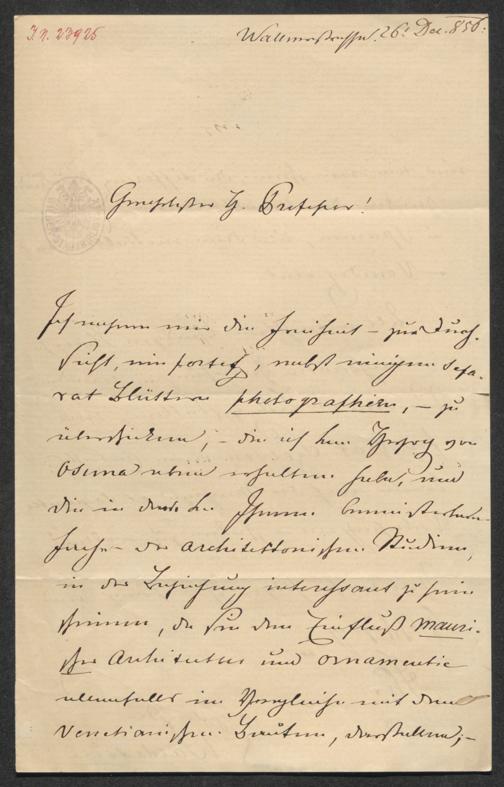 I. N. 23925
26. Dec. 856.
Geehrtester H. Professor!
Ich nehme mir die Freiheit – zur Durch-
sicht, ein , nebst einigen Sepa-
rat Blättern photographien, – zu
überschicken, – die ich vom Herzog von
Osuna erhalten habe, und
die in dem Ihnen
fache der architektonischen Studien,
in der Beziehung interessant zu sein
scheinen, da sie den Einfluß mauri-
scher Architectur und ornamentic
im Vergleiche mit den
Venetianischen Bauten, darstellen, –